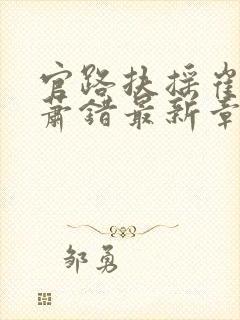 官路扶摇崔
萧错最新章
邹勇